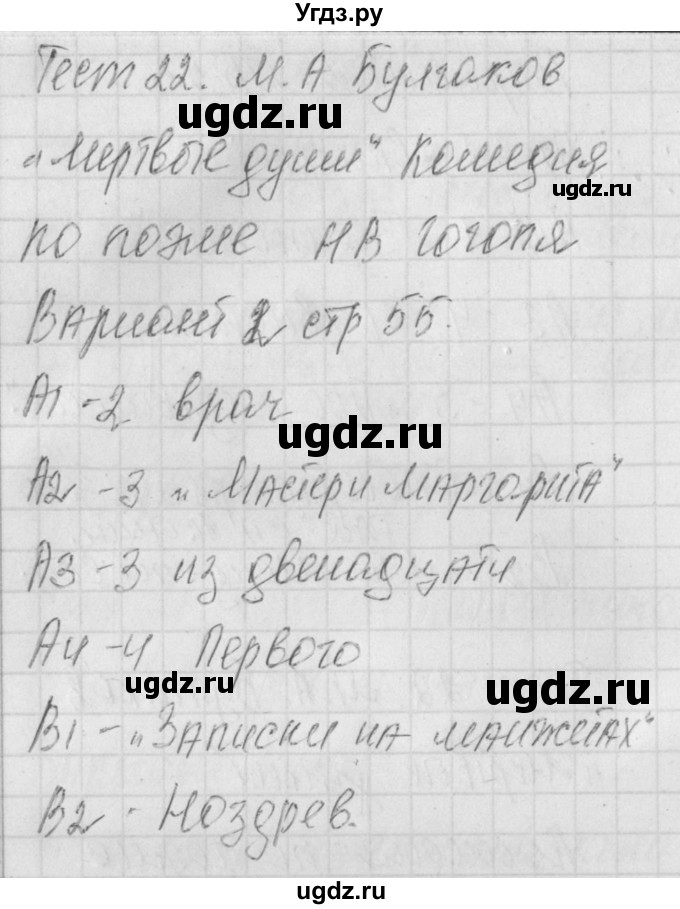 Угдз.ру
Тест 22. М.А Булгаков
ugdz.ru
„Мертвые души“ Комедия
ugdz.ru
по поэме НВ Гоголя
Вариант 2 стр 55.
А1 -2 врач
ugdz.ru
А2 -3 „Мастер и Маргарита“
А3 -3 из двенадцати
А4 -4 Первого
ugdz.ru
ugdz.ru
В1 - „Записки на манжетах“
В2 - Ноздрев.
ugdz.ru
ugdz.ru